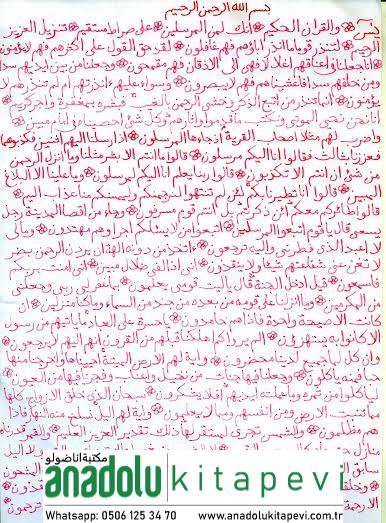 بسم الله الرحمن الرحيم
يس والقران الحكيم انك لمن المرسلين على صراط مستقيم تنزيل العزيز
الرحيم لتنذر قوما ما انذر اباؤهم فهم غافلون لقد حق القول على اكثرهم فهم لا يؤمنون
انا جعلنا في اعناقهم اغلالا فهي الى الاذقان فهم مقمحون وجعلنا من بين ايديهم سدا
ومن خلفهم سدا فاغشيناهم فهم لا يبصرون وسواء عليهم اانذرتهم ام لم تنذرهم لا
يؤمنون انما تنذر من اتبع الذكر وخشي الرحمن بالغيب فبشره بمغفرة واجر كريم
انا نحن نحي الموتى ونكتب ما قدموا واثارهم وكل شئ احصيناه في امام مبين
واضرب لهم مثلا اصحاب القرية اذ جاءها المرسلون اذ ارسلنا اليهم اثنين فكذبوهما
فعززنا بثالث فقالوا انا اليكم مرسلون قالوا ما انتم الا بشر مثلنا وما انزل الرحمن
من شئ ان انتم الا تكذبون قالوا ربنا يعلم انا اليكم لمرسلون وما علينا الا البلاغ
المبين قالوا انا تطيرنا بكم لئن لم تنتهوا لنرجمنكم وليمسنكم منا عذاب اليم
قالوا طائركم معكم ائن ذكرتم بل انتم قوم مسرفون وجاء من اقصا المدينة رجل
يسعى قال يا قوم اتبعوا المرسلين اتبعوا من لا يسئلكم اجرا وهم مهتدون وما لي
لا اعبد الذي فطرني واليه ترجعون ااتخذ من دونه الهة ان يردن الرحمن بضر
لا تغن عني شفاعتهم شيئا ولا ينقذون اني اذا لفي ضلال مبين اني امنت بربكم
فاسمعون قيل ادخل الجنة قال يا ليت قومي يعلمون بما غفر لي ربي وجعلني
من المكرمين وما انزلنا على قومه من بعده من جند من السماء وما كنا منزلين ان
كانت الا صيحة واحدة فاذا هم خامدون يا حسرة على العباد ما ياتيهم من رسول
الا كانوا به يستهزؤن الم يروا كم اهلكنا قبلهم من القرون انهم اليهم لا يرجعون
وان كل لما جميع لدينا محضرون واية لهم الارض الميتة احييناها واخرجنا منها
حبا فمنه ياكلون وجعلنا فيها جنات من نخيل واعناب وفجرنا فيها من العيون
لياكلوا من ثمره وما عملته ايديهم افلا يشكرون سبحان الذي خلق الازواج كلها
مما تنبت الارض ومن انفسهم ومما لا يعلمون واية لهم اليل نسلخ منه النهار فاذا
هم مظلمون والشمس تجري لمستقر لها ذلك تقدير العزيز العليم والقمر قدرناه
منازل
سابق
مكتبة اناضولو
anadolu kitapevi
Whatsapp: 0506 125 34 70 www.anadolukitapevi.com.tr